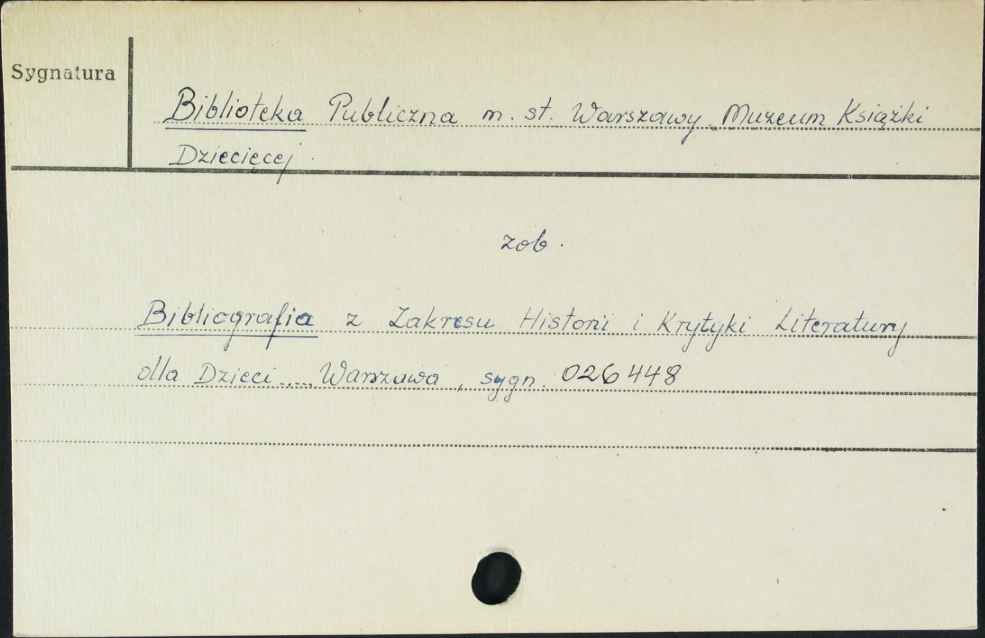 Sygnatura
Biblioteka Publiczna m. st. Warszawy. Muzeum Książki
Dziecięcej.
zob.
Bibliografia z Zakresu Historii i Krytyki Literatury
dla Dzieci .... Warszawa, sygn. 026448